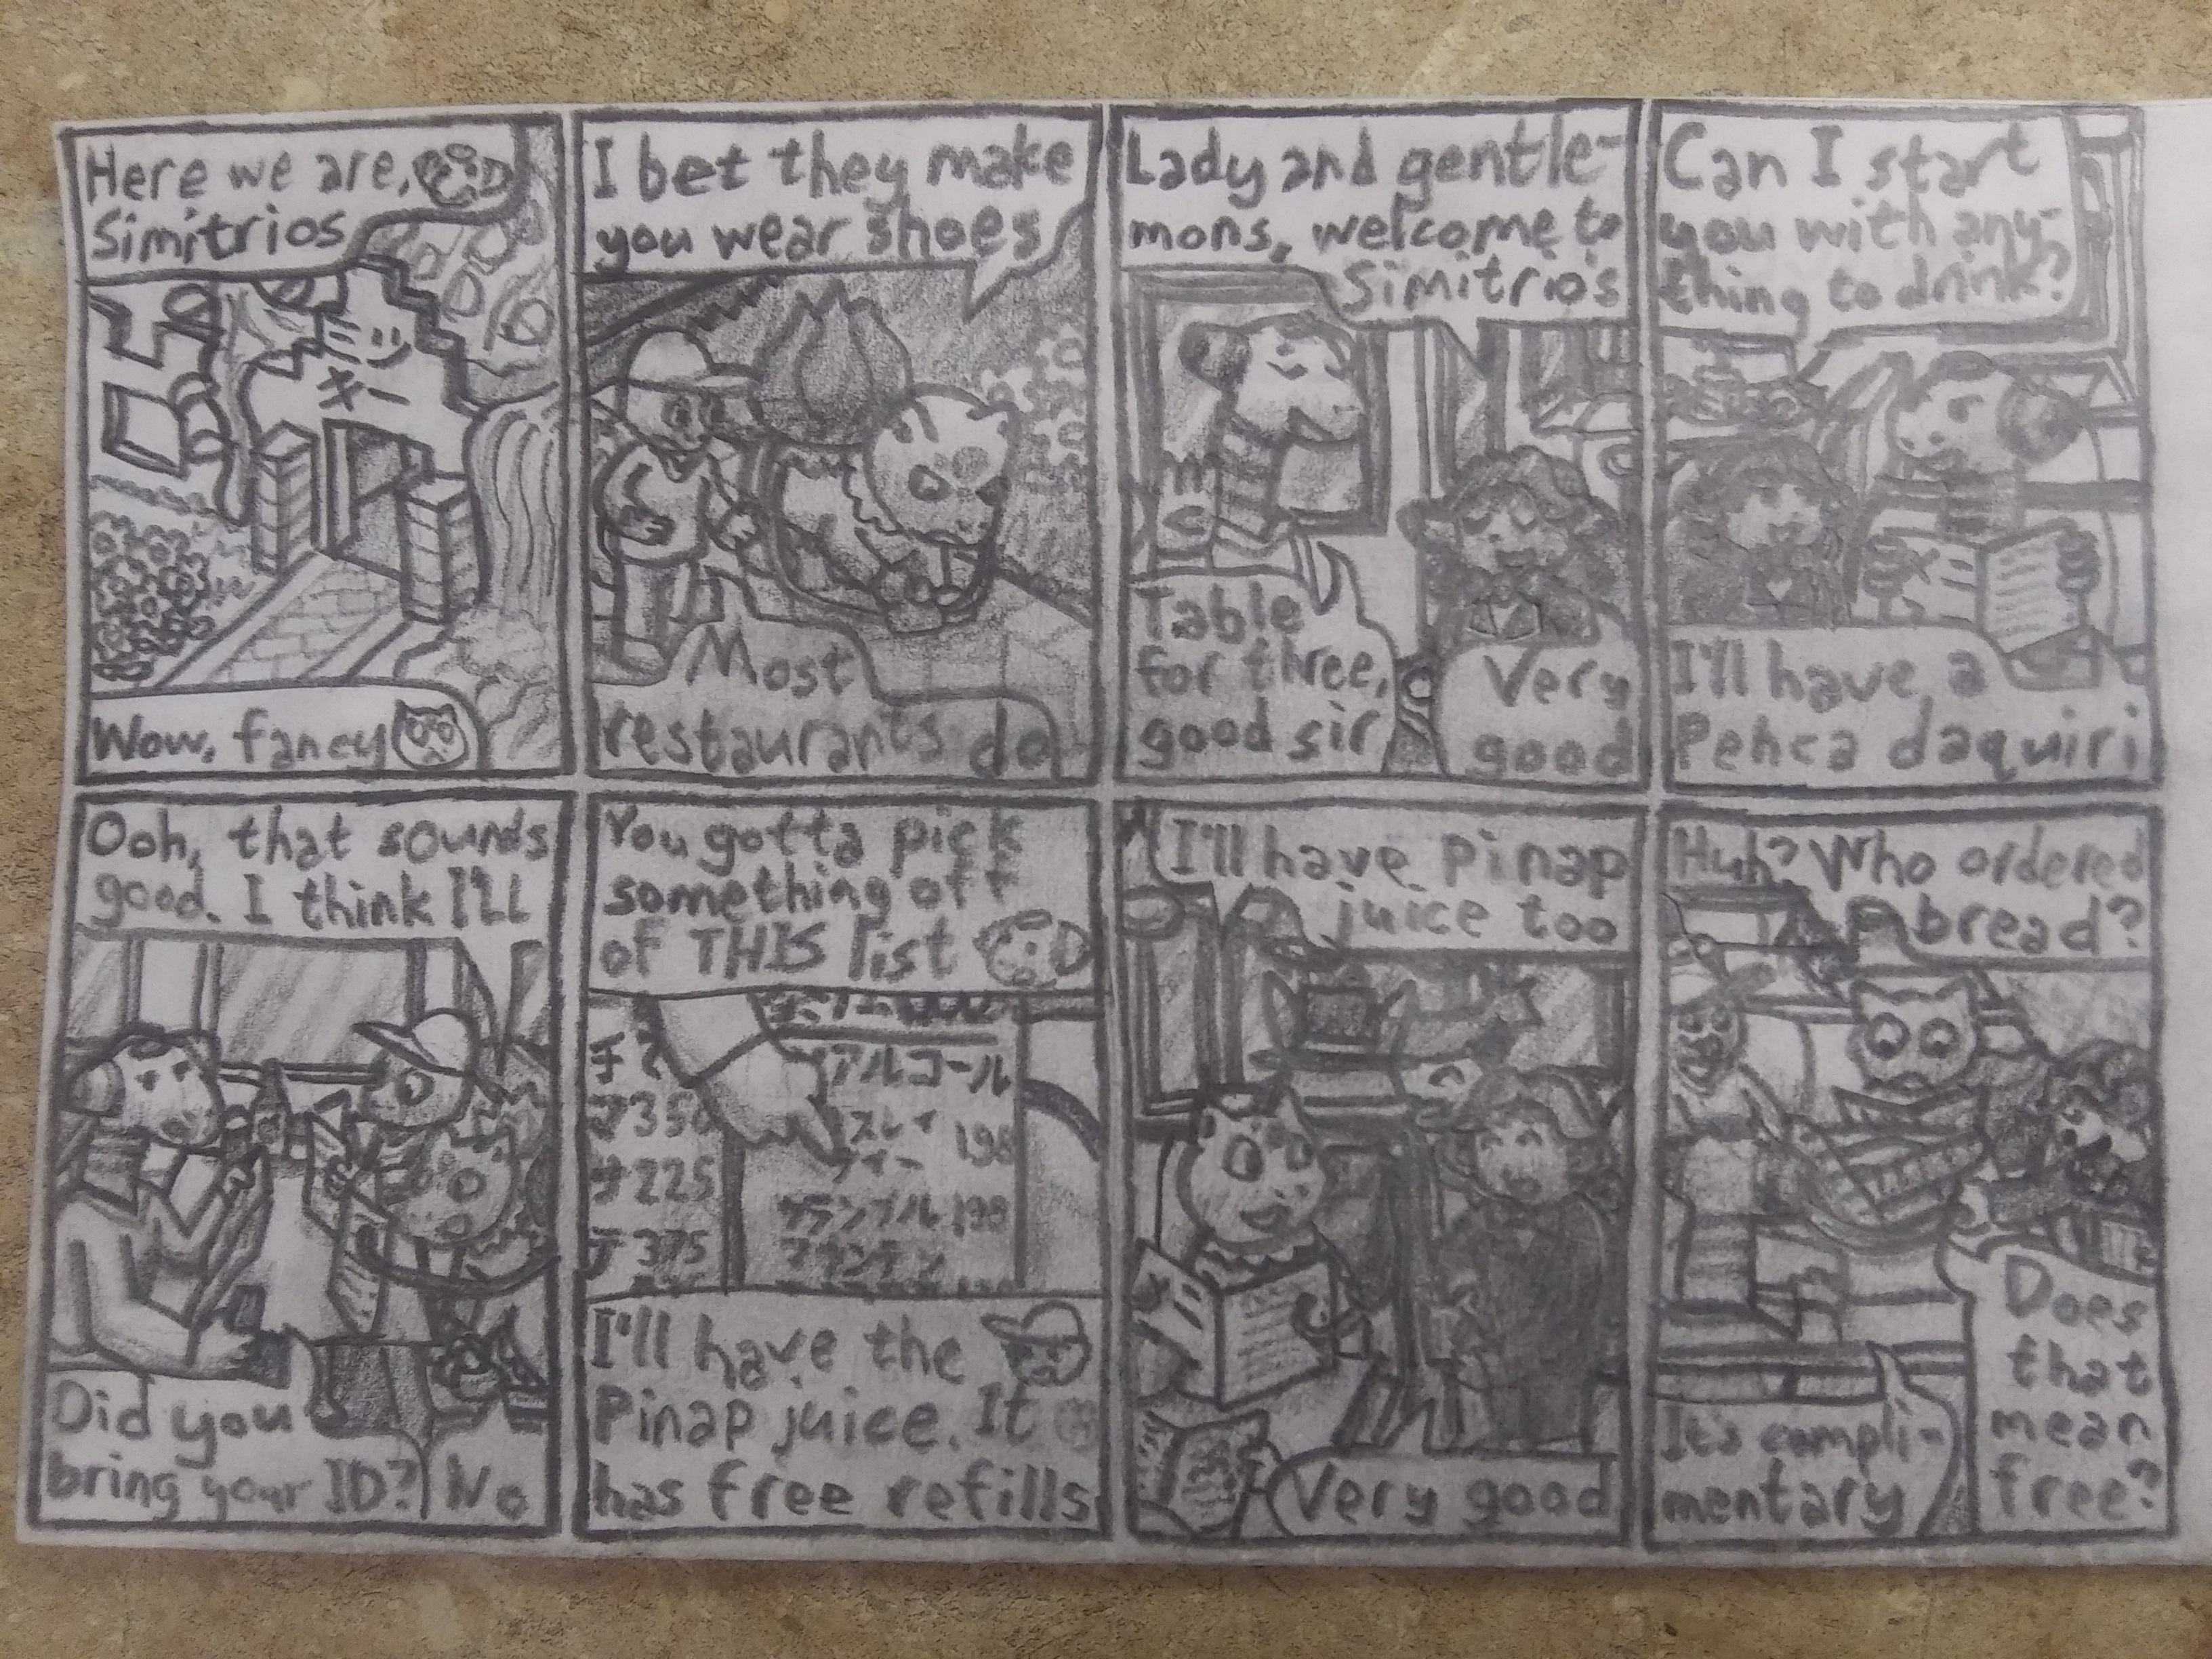 Here we are,
Simitrios
ミツ
キー
Wow, fancy
I bet they make
you wear shoes
Most
restaurants do
Lady and gentle-
mons, welcome to
Simitrio's
Table
for three,
good sir
Very
good
Can I start
you with any-
thing to drink?
I'll have a
Pehca daquiri
Ooh, that sounds
good. I think I'll
Did you
bring your ID?
No
You gotta pick
something off
of THIS list
アルコール
350
サ225
テ375
グランブル 198
マウンテン
I'll have the
Pinap juice. It
has free refills
I'll have Pinap
juice too
Very good
Huh? Who ordered
bread?
It's compli-
mentary
Does
that
mean
free?